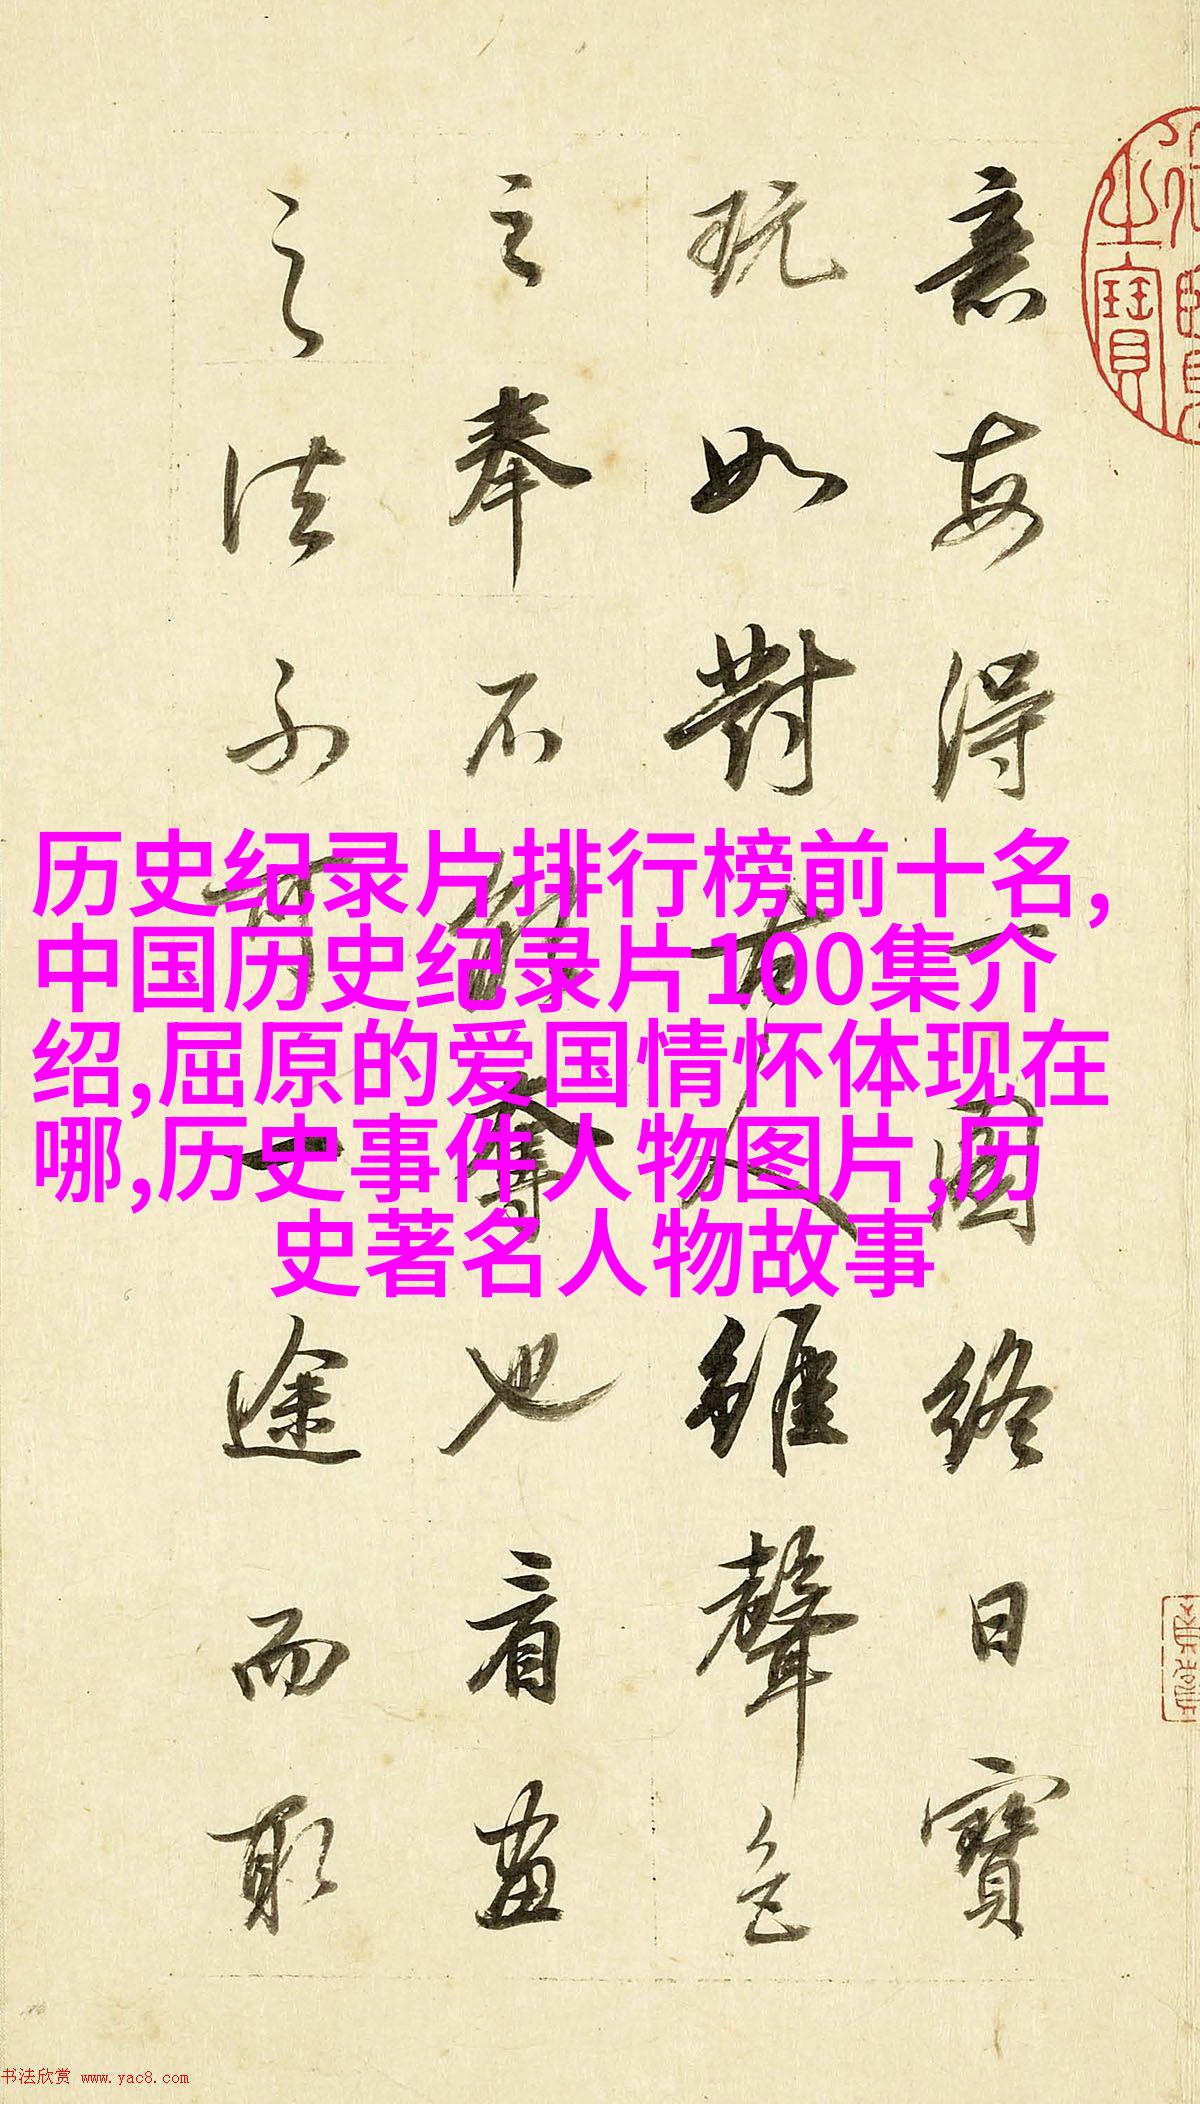 意每得一圖終日寶
玩如對古人雖聲色
之奉不能奪也看畫
之法不可一途而取
之寶
历史纪录片排行榜前十名,
中国历史纪录片100集介
绍,屈原的爱国情怀体现在
哪,历史事件人物图片,历
史著名人物故事
书法欣赏 www.yac8.com